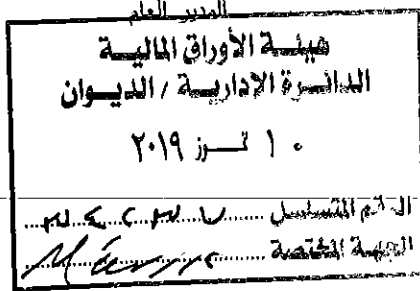 المدير العام
هيئة الأوراق المالية
الدائرة الإدارية / الديوان
١٠ تموز ٢٠١٩
الرقم المتسلسل
الجهة المختصة